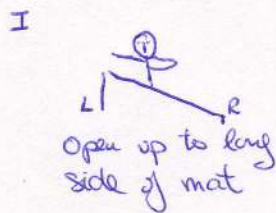 I
L R
Open up to long
side of mat